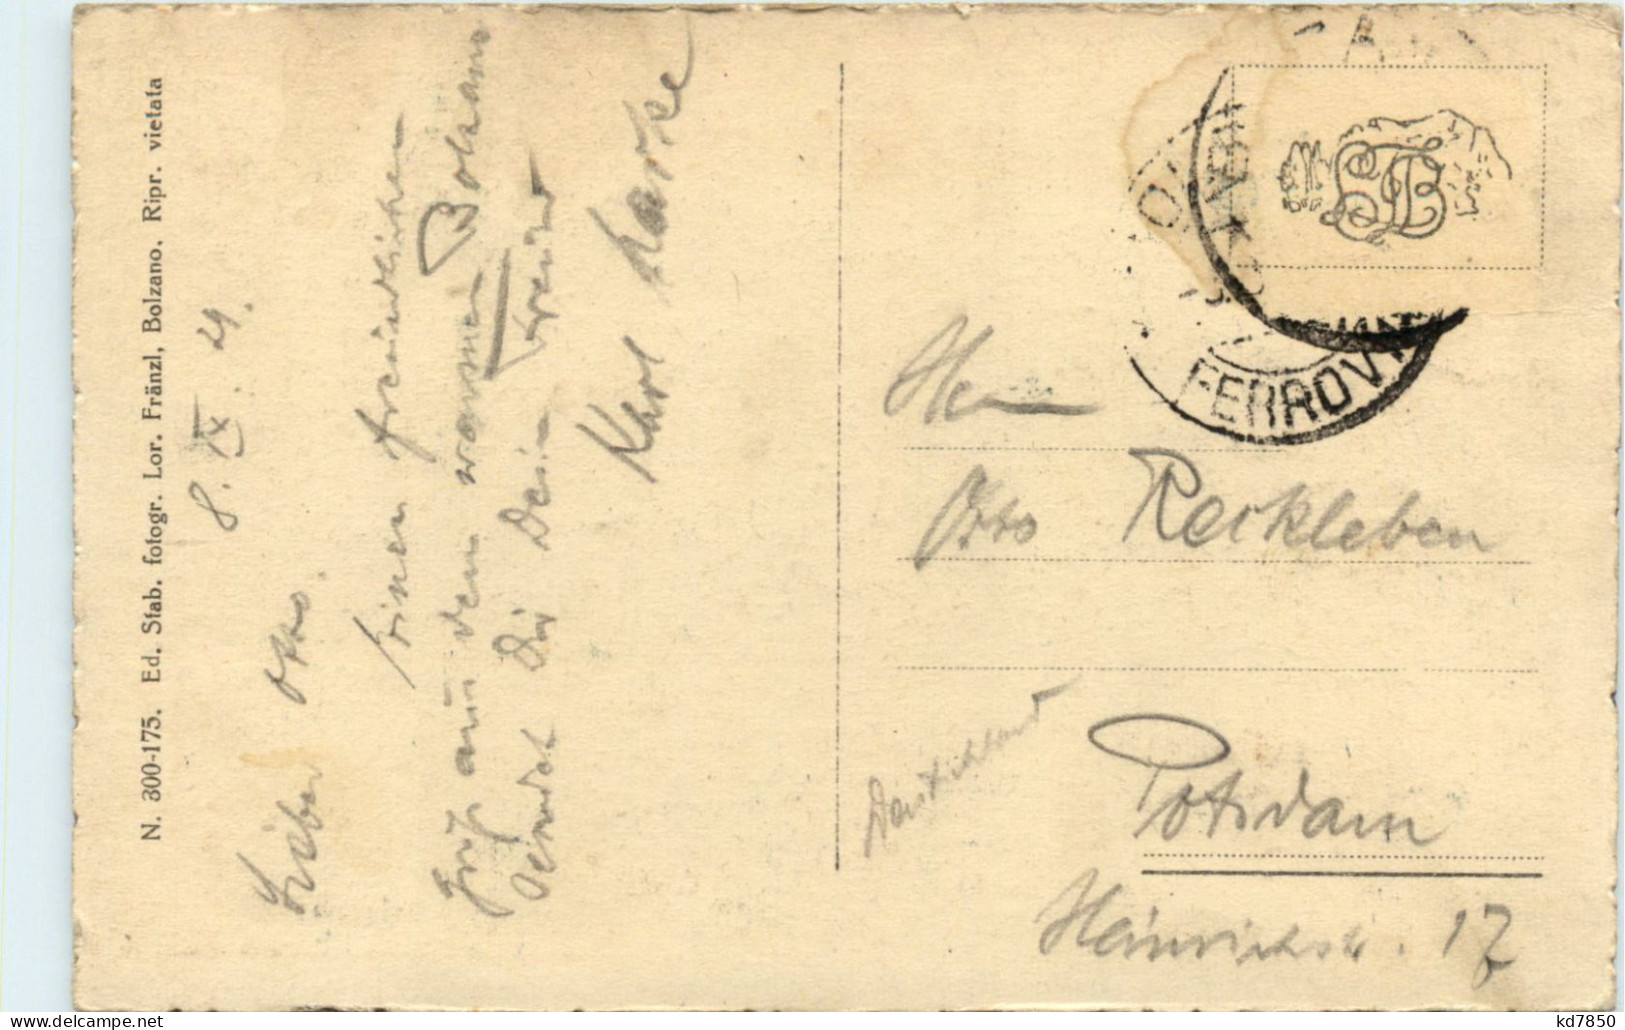 N. 300-175. Ed. Stab. fotogr. Lor. Fränzl, Bolzano. Ripr. vietata
8. IX. 21.
Lieber Otto
Einen freundlichen
aus dem warmen Bolzano
sendet Dir Dein Freund
Karl
FERROVIA
Herrn
Otto Reckleben
Deutschland
Potsdam
Heinrichstr. 17
kd7850